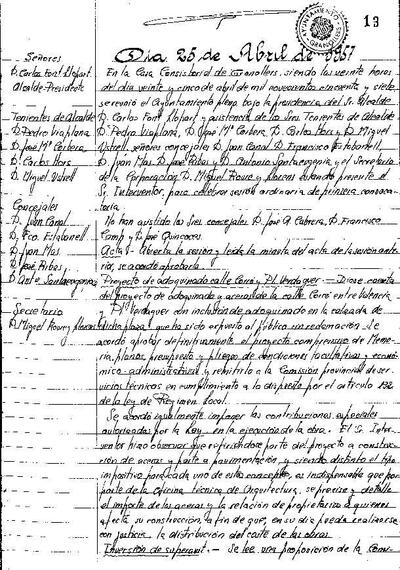 AYUNTAMIENTO
GRANOLLERS
13
Día 25 de Abril de 1957
Señores
D. Carlos Font Llopart
Alcalde-Presidente
Tenientes de Alcalde
D. Pedro Viaplana
D. José Mª Corbera
D. Carlos Llors
D. Miguel Ustrell
Concejales
D. Juan Canal
D. Fco. Estabanell
D. Juan Mas
D. José Ribas
D. Anto. Santaeugenia
Secretario
D. Miguel Roure y Llorens
En la Casa Consistorial de Granollers, siendo las veinte horas
del día veinte y cinco de abril de mil novecientos cincuenta y siete
se reunió el Ayuntamiento pleno bajo la presidencia del Sr. Alcalde
D. Carlos Font Llopart y asistencia de los Sres Tenientes de Alcalde
D. Pedro Viaplana, D. José Mª Corbera, D. Carlos Llors y D. Miguel
Ustrell, señores concejales D. Juan Canal D. Francisco Estabanell,
D. Juan Mas, D. José Ribas y D. Antonio Santaeugenia, y el Secretario
de la Corporación D. Miguel Roure y Llorens estando presente el
Sr. Interventor, para celebrar sesión ordinaria de primera convoca-
toria.
No han asistido los Sres concejales D. José A. Cabrera, D. Francisco
Camp y D. José Quincoces.
Acta - Abierta la sesión y leída la minuta del acta de la sesión ante-
rior, se acordó aprobarla.
Proyecto de adoquinado calle Corró y Pl. Verdaguer - Diose cuenta
del proyecto de adoquinado y aceras de la calle Corró entre Valencia
y Pl. Verdaguer con inclusión de adoquinado en la calzada de
dicha plaza, que ha sido expuesto al público sin reclamación. Se
acordó aprobar definitivamente el proyecto comprensivo de Memo-
ria, planos, presupuesto y pliegos de condiciones facultativas y econó-
mico administrativas y remitirlo a la Comisión provincial de ser-
vicios técnicos en cumplimiento a lo dispuesto por el artículo 132
de la Ley de Régimen Local.
Se acordó igualmente imponer las contribuciones especiales
autorizadas por la Ley, en la ejecución de la obra. El Sr. Inter-
ventor hizo observar que refiriéndose parte del proyecto a construc-
ción de aceras y parte a pavimentación, y siendo distinto el tipo
impositivo para cada uno de estos conceptos, es indispensable que por
parte de la oficina técnica de Arquitectura, se precise y detalle
el importe de las aceras y la relación de propietarios a quienes
afecta su construcción, a fin de que, en su día pueda realizarse
con justicia la distribución del coste de las obras.
Inversión de superavit. - Se lee una proposición de la Comi-